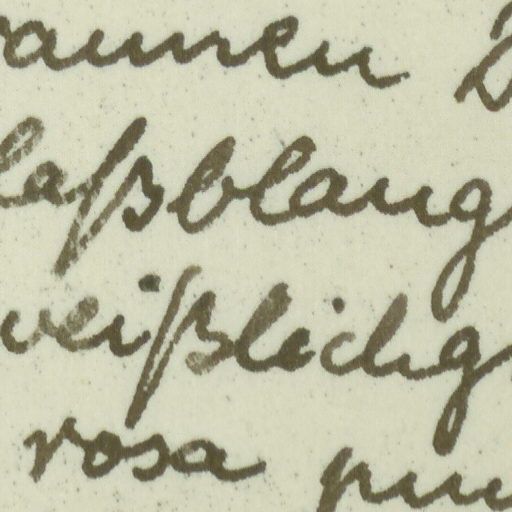 raunen
laßblaug
veißlichg
rosa pun